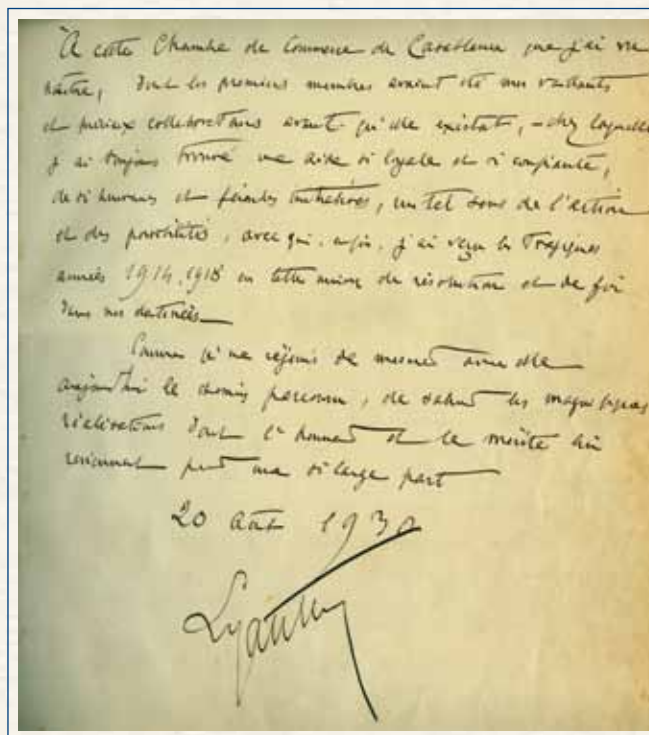 À cette Chambre de Commerce de Casablanca que j'ai vu
naître, dont les premiers membres avaient été mes vaillants
et précieux collaborateurs avant qu'elle existât, – chez laquelle
j'ai toujours trouvé une aide si loyale et si confiante,
de si heureuses et fécondes initiatives, un tel sens de l'action
et des possibilités, avec qui, enfin, j'ai vécu les tragiques
années 1914.1918 en telle union de résolution et de foi
dans nos destinées —
Comme je me réjouis de mesurer avec elle
aujourd'hui le chemin parcouru, de saluer les magnifiques
réalisations dont l'honneur et le mérite lui
reviennent pour une si large part
20 Août 1930
Lyautey